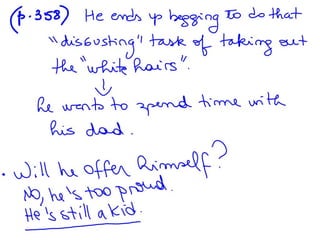 (p.358) He ends up begging to do that
"disgusting" task of taking out
the "white hairs".
↓
he wants to spend time with
his dad.
• Will he offer himself?
No, he's too proud.
He's still a kid.